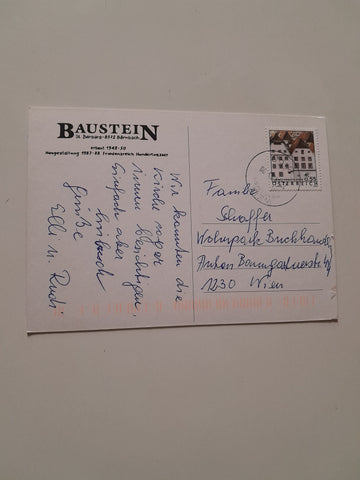 BAUSTEIN
St. Barbara-8572 Bärnbach
erbaut 1948-50
Neugestaltung 1987-88 Friedensreich Hundertwasser
Wir konnten die
Kirche sogar
innen besichtigen,
Einfach aber
Grüße
Elli u. Rudi
ÖSTERREICH
0,55
Familie
Schaffer
Wohnpark
Anton Baumgartnerstr.
1230 Wien